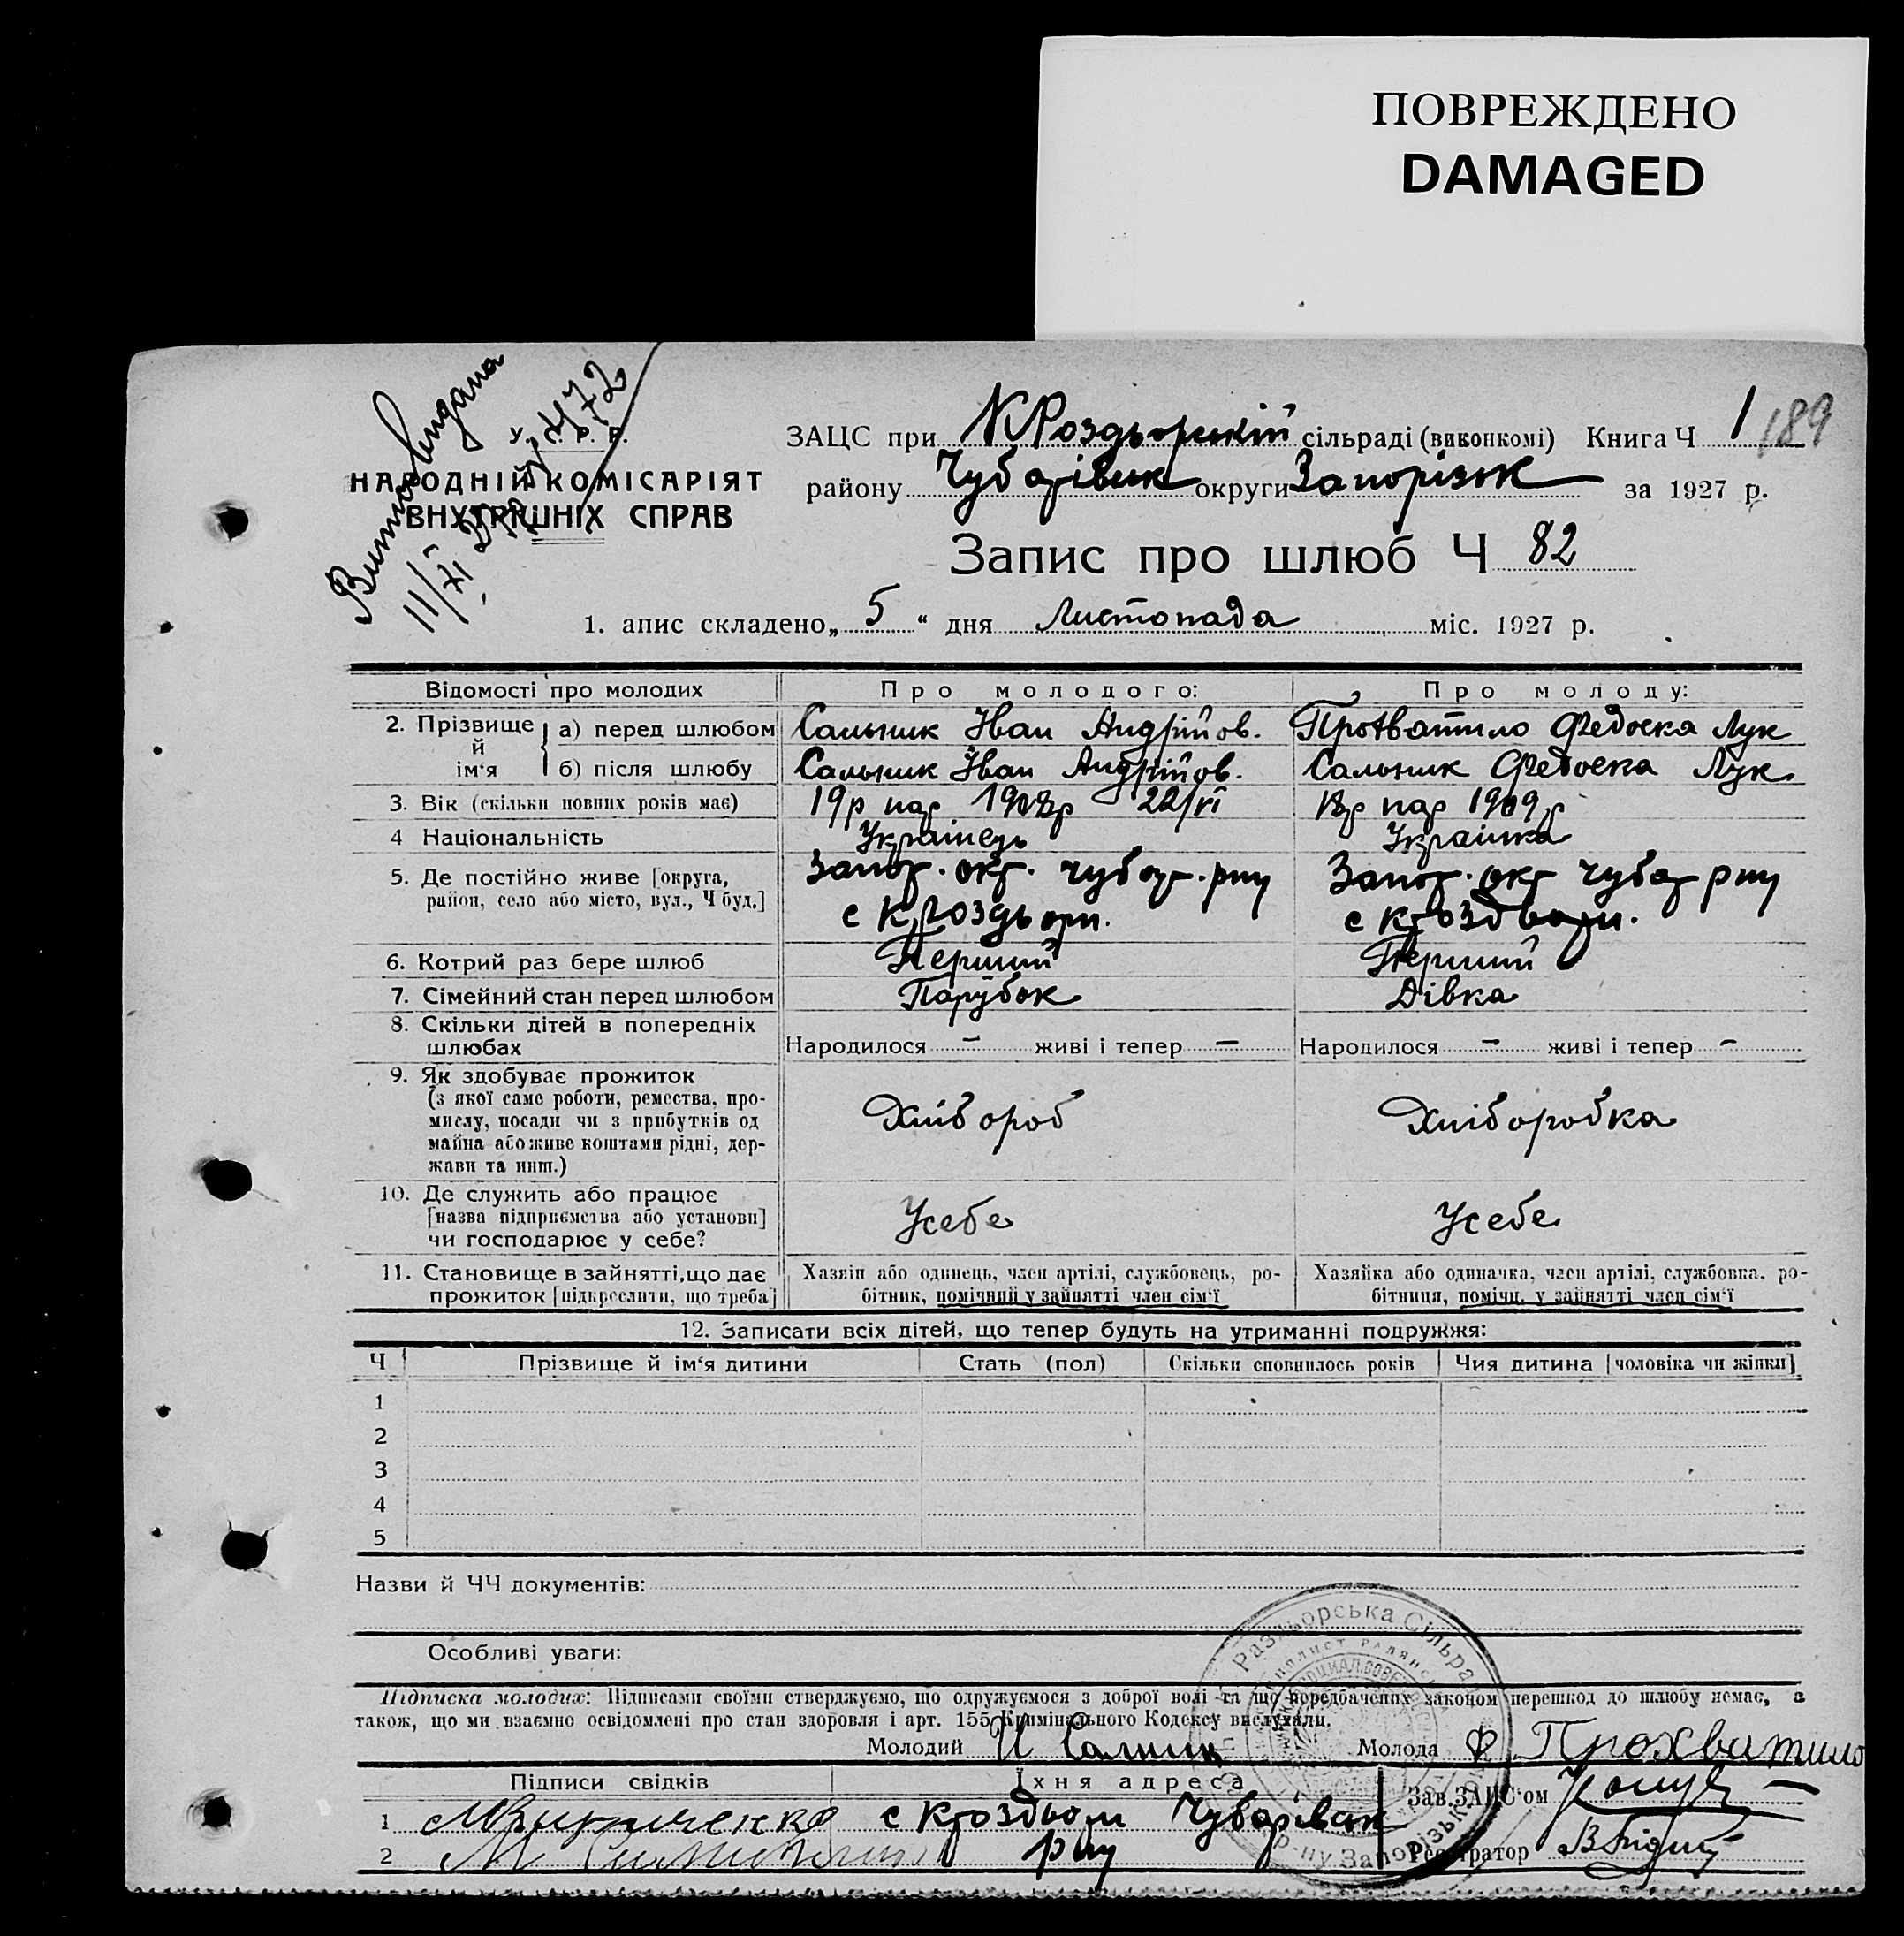 ПОВРЕЖДЕНО
DAMAGED
У. С. Р. Р.
НАРОДНІЙ КОМІСАРІЯТ
ВНУТРІШНІХ СПРАВ
11/XI
ЗАЦС при К Роздьорській сільраді (виконкомі) Книга Ч 1 189
району Чубарівськ округи Запорізьк за 1927 р.
Запис про шлюб Ч 82
1. апис складено „ 5 “ дня Листопада міс. 1927 р.
Відомості про молодих Про молодого: Про молоду:
2. Прізвище й ім‘я а) перед шлюбом Сальник Іван Андрійов. Федоска Лук
б) після шлюбу Сальник Іван Андрійов. Сальник Федоска Лук
3. Вік (скільки повних років має) 19р нар 1908р 22/VI 18р нар 1909р
4 Національність Українець Украінка
5. Де постійно живе [округа, район, село або місто, вул., Ч буд.] Запор. окр. Чубар. рну Запор. окр Чубар рну
с К Роздьори. с К Роздьори.
6. Котрий раз бере шлюб Перший Перший
7. Сімейний стан перед шлюбом Парубок Дівка
8. Скільки дітей в попередніх шлюбах Народилося – живі і тепер – Народилося – живі і тепер –
9. Як здобуває прожиток Хлібороб Хліборобка
(з якої саме роботи, ремества, про-
мислу, посади чи з прибутків од
майна або живе коштами рідні, дер-
жави та инш.)
10. Де служить або працює Усебе Усебе
[назва підприємства або установи]
чи господарює у себе?
11. Становище в зайнятті, що дає Хазяін або одинець, член артілі, службовець, ро- Хазяйка або одиначка, член артілі, службовка, ро-
прожиток [підкреслити, що треба] бітник, помічний у зайнятті член сім‘ї бітниця, помічн. у зайнятті член сім‘ї
12. Записати всіх дітей, що тепер будуть на утриманні подружжя:
Ч Прізвище й ім‘я дитини Стать (пол) Скільки сповнилось років Чия дитина [чоловіка чи жінки]
1
2
3
4
5
Назви й ЧЧ документів:
Особливі уваги:
Підписка молодих: Підписами своїми стверджуємо, що одружуємося з доброї волі та що передбачених законом перешкод до шлюбу немає, а
також, що ми взаємно освідомлені про стан здоровля і арт. 155 Кримінального Кодексу вислухали.
Молодий И Салник Молода Ф Прохватило
Підписи свідків Їхня адреса Зав. ЗАЦС‘ом
1 с К Роздьори Чубарівськ
2 рну Реєстратор
Раздьорська Сільрада
р-ну Запорізьк